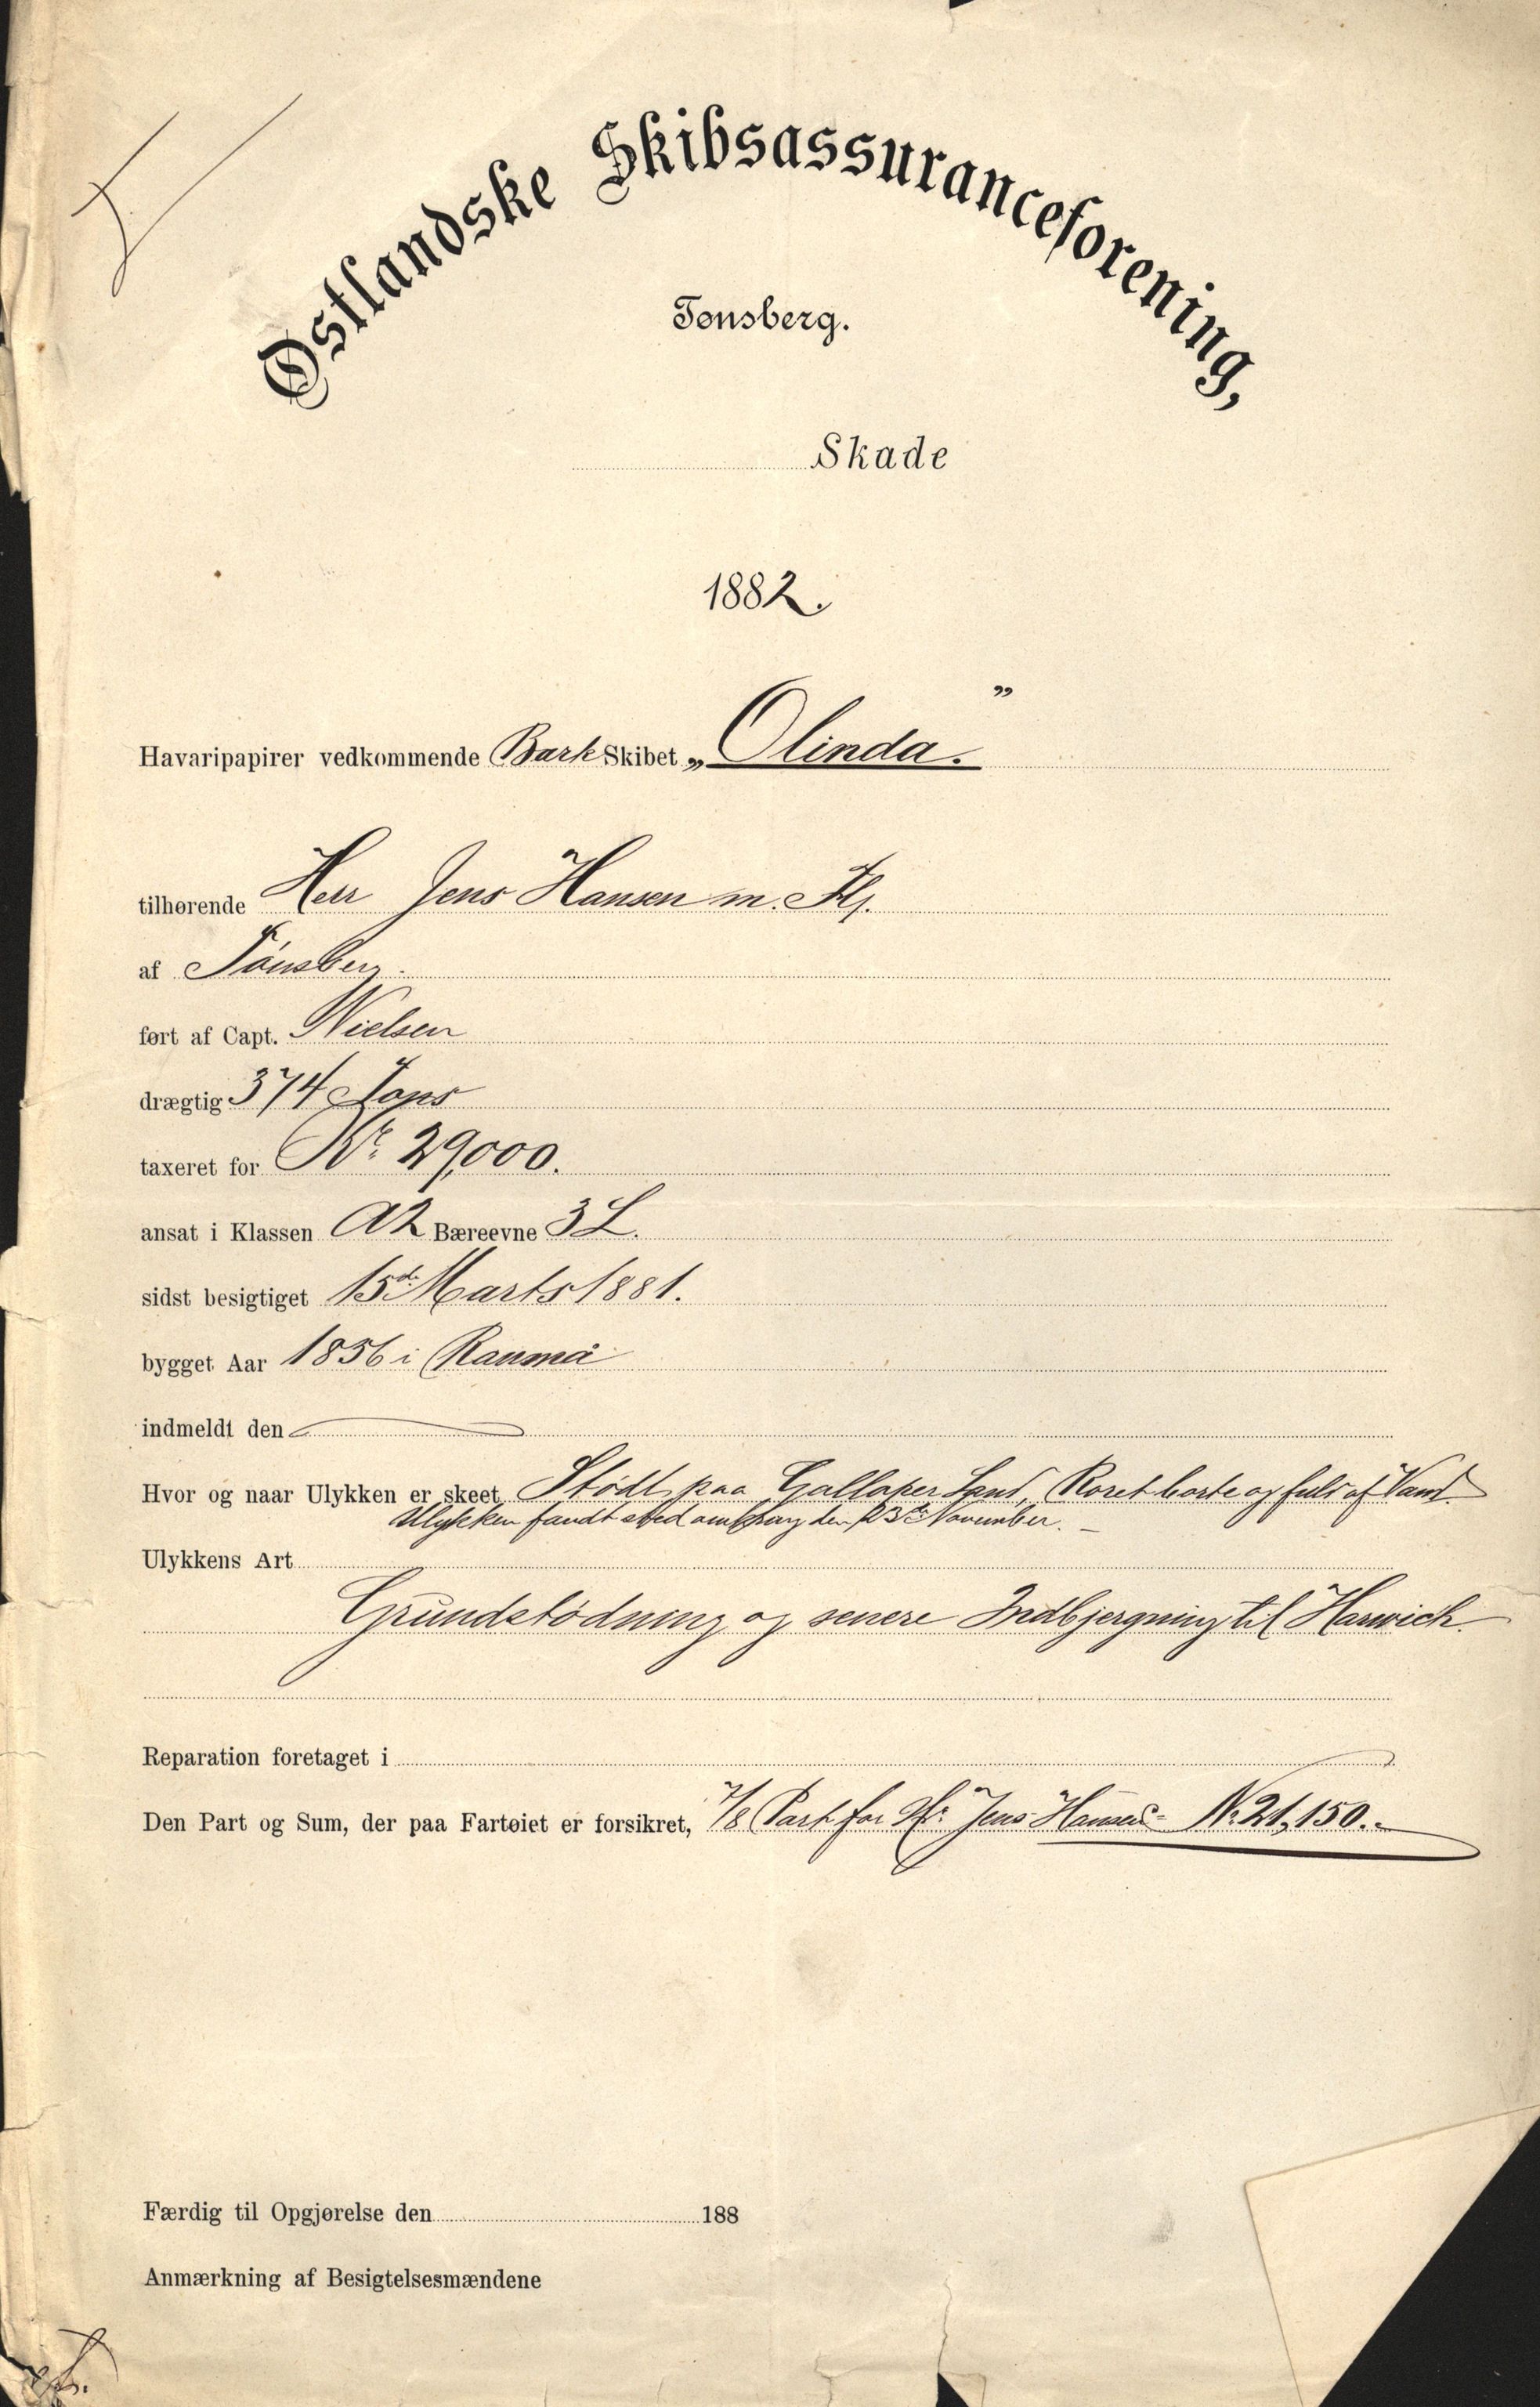 Østlandske Skibsassuranceforening,
Tønsberg.
Skade
1882.
Havaripapirer vedkommende Bark Skibet „Olinda.”
tilhørende Herr Jens Hansen m. Fl.
af Tønsberg.
ført af Capt. Nielsen
drægtig 374 Tons
taxeret for Kr. 29,000.
ansat i Klassen A2 Bæreevne 3 L.
sidst besigtiget 15de Marts 1881.
bygget Aar 1856 i Raumå
indmeldt den
Hvor og naar Ulykken er skeet Stødt paa Galloper Sand, Roret borte og fuld af Vand.
Ulykken fandt sted omkring den 23de November.
Ulykkens Art
Grundstødning og senere Indbjergning til Harwich.
Reparation foretaget i
Den Part og Sum, der paa Fartøiet er forsikret, 7/8 Part for Hr. Jens Hansen = Kr. 21,150.
Færdig til Opgjørelse den 188
Anmærkning af Besigtelsesmændene